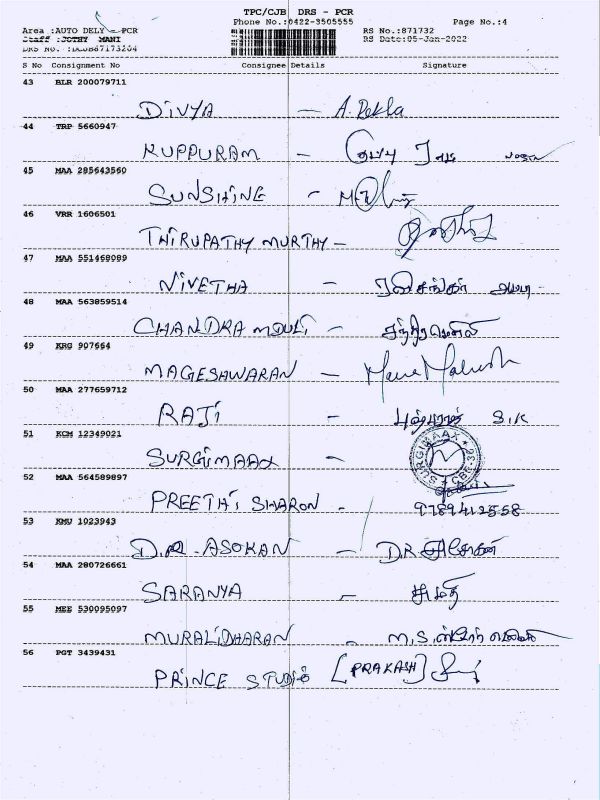 TPC/CJB DRS - PCR
Phone No.:0422-3505555 Page No.:4
Area :AUTO DELY - PCR RS No.:871732
Staff :JOTHY MANI RS Date:05-Jan-2022
DRS No. :
S No Consignment No Consignee Details Signature
43 BLR 200079711
DIVYA - A. Rekha
44 TRP 5660947
KUPPURAM -
45 MAA 285643560
SUNSHINE -
46 VRR 1606501
THIRUPATHY MURTHY -
47 MAA 551468089
NIVETHA -
48 MAA 563859514
CHANDRA MOULI - சந்திரமௌலி
49 KRG 907664
MAGESHWARAN -
50 MAA 277659712
RAJI - S.K
51 KCM 12349021
SURGIMAAX - SURGIMAAX
52 MAA 564589897
PREETHI SHARON - 9789412558
53 KMU 1023943
D.R. ASOKAN - D.R அசோகன்
54 MAA 280726661
SARANYA - சுமதி
55 MEE 530095097
MURALIDHARAN - M.S.
56 PGT 3439431
PRINCE STUDIO [PRAKASH]